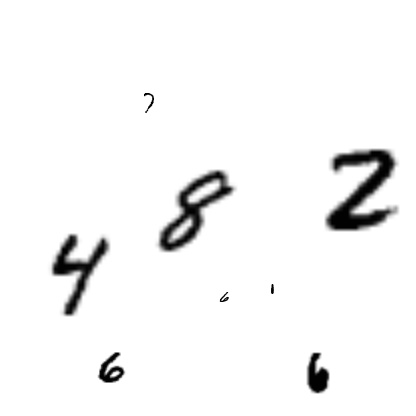 7
8 2
4
6 1
6 6